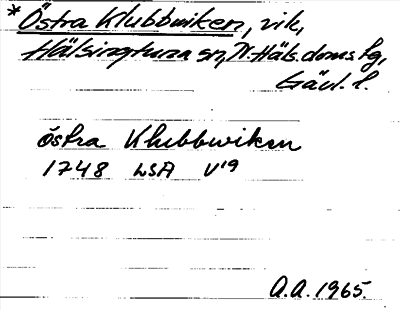 * Östra Klubbwiken, vik,
Hälsingtuna sn, N. Häls. doms. tg,
Gävl. l.
östra Klubbwiken
1748 LSA V19
A.A. 1965.